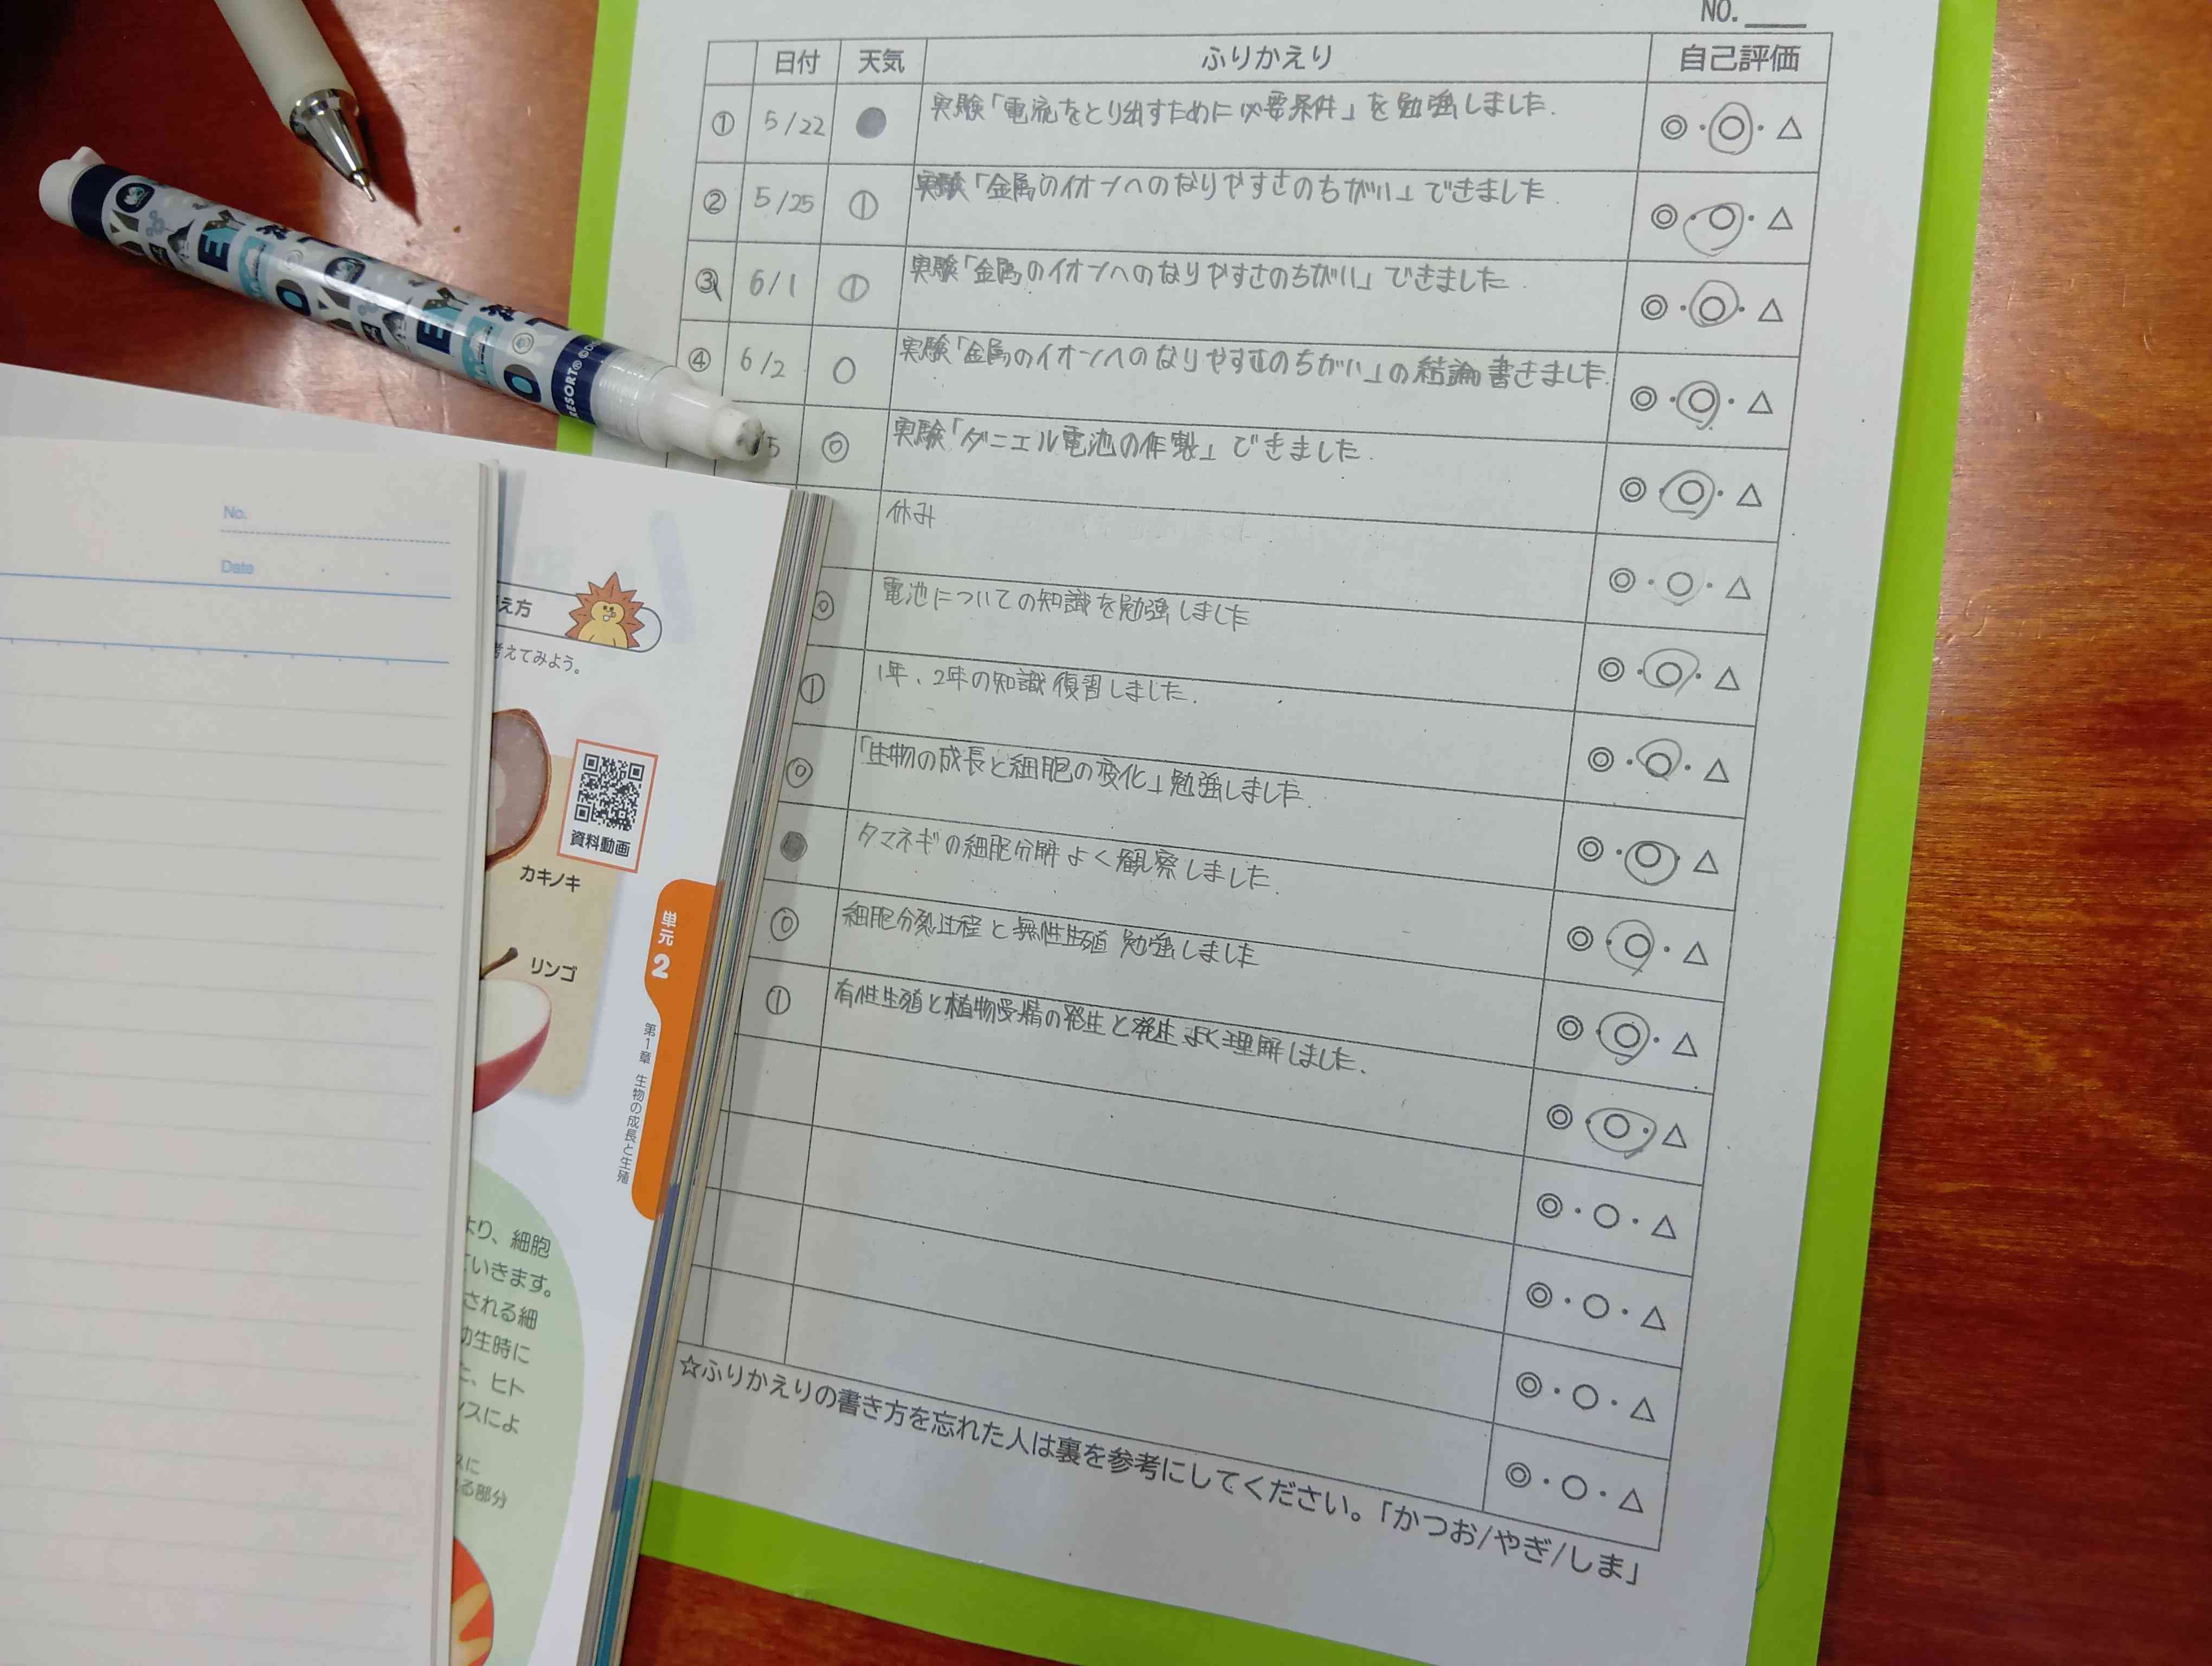 NO.
日付 天気 ふりかえり 自己評価
① 5/22 実験「電流をとり出すために必要条件」を勉強しました. ◎・○・△
② 5/25 実験「金属のイオンへのなりやすさのちがい」できました. ◎・○・△
③ 6/1 実験「金属のイオンへのなりやすさのちがい」できました. ◎・○・△
④ 6/2 実験「金属のイオンへのなりやすさのちがい」の結論書きました. ◎・○・△
5 実験「ダニエル電池の作製」できました. ◎・○・△
休み ◎・○・△
電池についての知識を勉強しました ◎・○・△
1年、2年の知識復習しました. ◎・○・△
「生物の成長と細胞の変化」勉強しました. ◎・○・△
タマネギの細胞分解よく観察しました. ◎・○・△
細胞分裂過程と無性生殖勉強しました ◎・○・△
有性生殖と植物受精の発生と発生よく理解しました. ◎・○・△
◎・○・△
◎・○・△
◎・○・△
◎・○・△
☆ふりかえりの書き方を忘れた人は裏を参考にしてください。「かつお/やぎ/しま」
RESORT®
No.
Date
え方
考えてみよう。
資料動画
カキノキ
リンゴ
単元2
第1章 生物の成長と生殖
より、細胞
いきます。
される細
幼生時に
ヒト
ンスによ
に
る部分